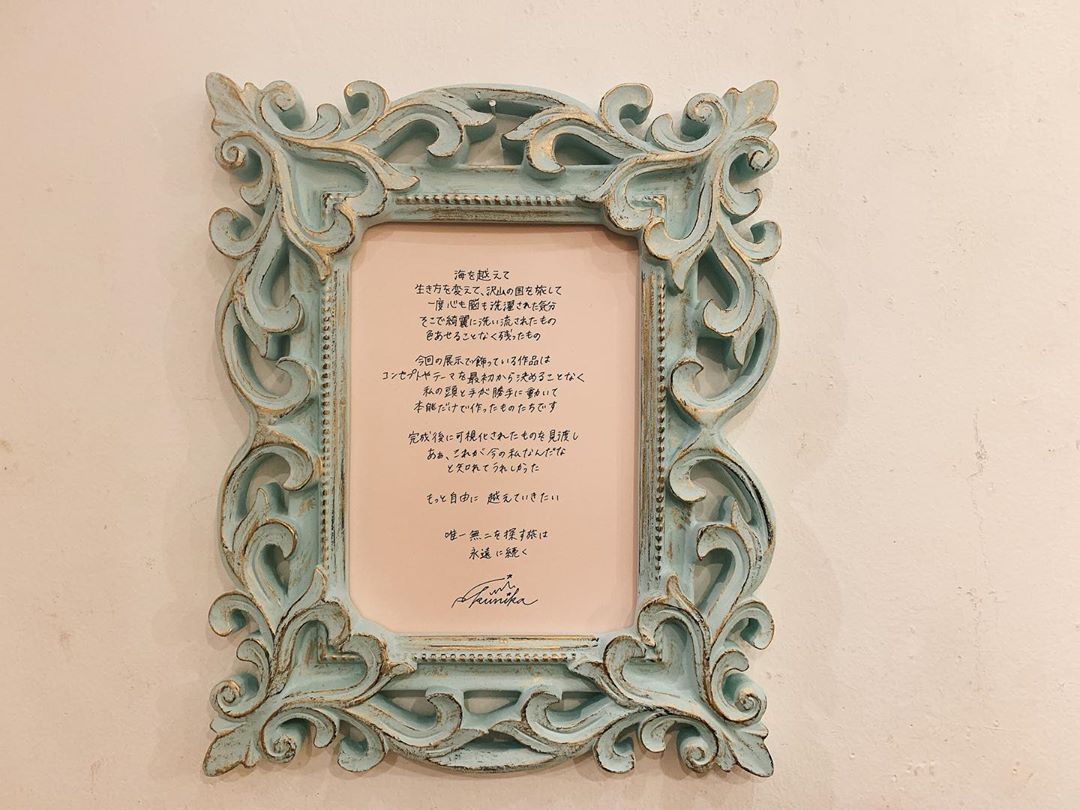 海を越えて
生き方を変えて、沢山の国を旅して
一度心も脳も洗濯された気分
そこで綺麗に洗い流されたもの
色あせることなく残ったもの
今回の展示で飾っている作品は
コンセプトやテーマを最初から決めることなく
私の頭と手が勝手に動いて
本能だけで作ったものたちです
完成後に可視化されたものを見渡し
あぁ、これが今の私なんだな
と知れてうれしかった
もっと自由に 越えていきたい
唯一無二を探す旅は
永遠に続く